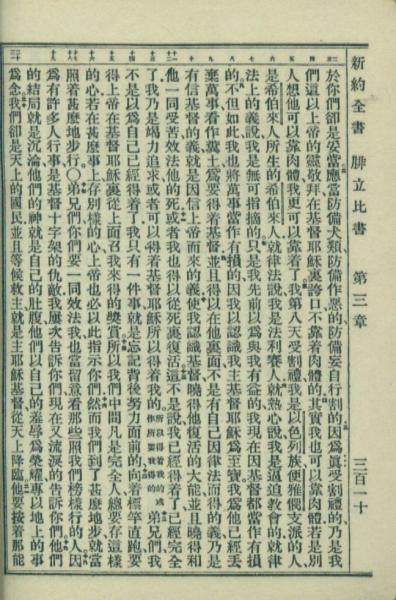 新約全書 腓立比書 第三章 三百一十
於你們卻是妥當應當防備犬類防備作惡的防備妄自行割的因為真受割禮的乃是我
們這以上帝的靈敬拜在基督耶穌裏誇口不靠着肉體的其實我也可以靠肉體若是別
人想他可以靠肉體我更可以靠着了我第八天受割禮我是以色列族便雅憫支派的人
是希伯來人所生的希伯來人就律法說我是法利賽人就熱心說我是逼迫教會的就律
法上的義說我是無可指摘的只是我先前以為與我有益的我現在因基督都當作有損
的不但如此我也將萬事當作有損的因我以認識我主基督耶穌為至寶我為他已經丟
棄萬事看作糞土為要得着基督並且得以在他裏面不是有自己因律法而得的義乃是
有信基督的義就是因信上帝而來的義使我認識基督曉得他復活的大能並且曉得和
他一同受苦效法他的死或者我也得以從死裏復活這不是說我已經得着了已經完全
了我乃是竭力追求或者可以得着基督耶穌所以得着我的所以得着我的或作所要我得的弟兄們我
不是以為自己已經得着了我只有一件事就是忘記背後努力面前的向着標竿直跑要
得上帝在基督耶穌裏從上面召我來得的獎賞所以我們中間凡是完全人總要存這樣
的心若在甚麼事上存別樣的心上帝也必以此指示你們然而我們到了甚麼地步就當
照着甚麼地步行〇弟兄們你們要一同效法我也當留意看那些照我們榜樣行的人因
為有許多人行事是基督十字架的仇敵我屢次告訴你們現在又流淚的告訴你們他們
的結局就是沉淪他們的神就是自己的肚腹他們以自己的羞辱為榮耀專以地上的事
為念我們卻是天上的國民並且等候救主就是主耶穌基督從天上降臨他要按着那能